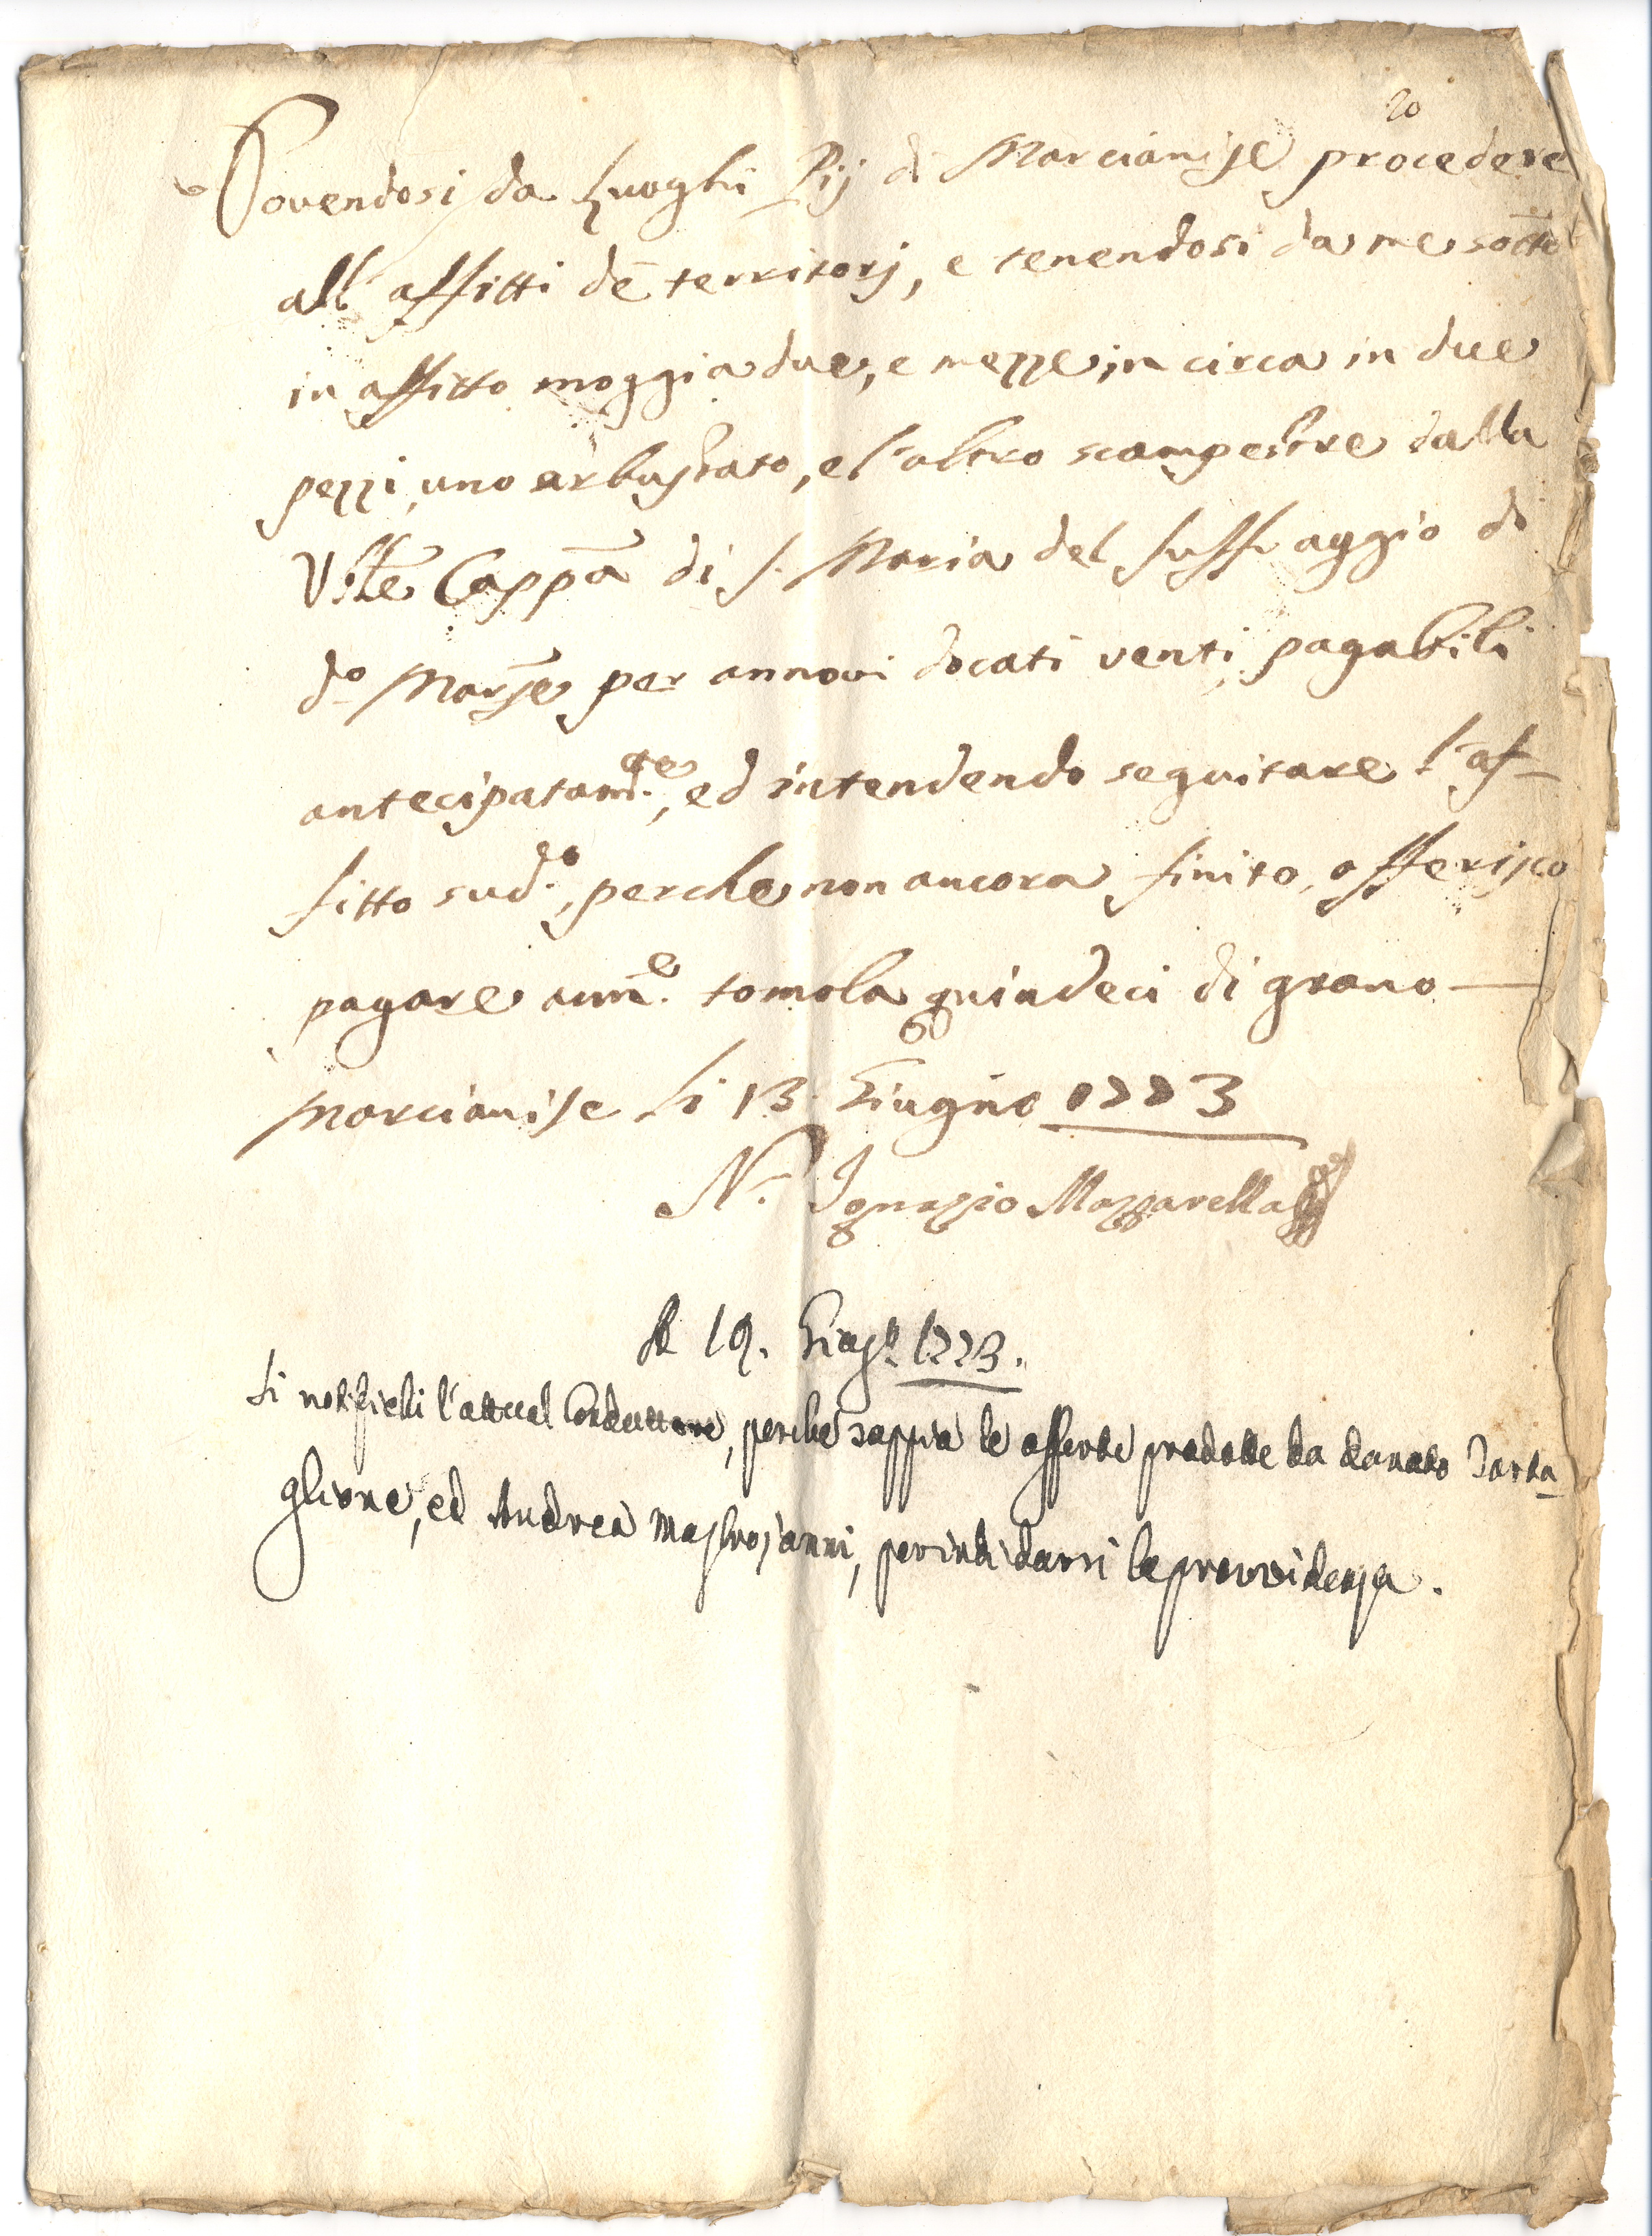 20
Dovendosi da Luoghi Pij di Marcianise procedere
all'affitti de territorj, e tenendosi da me sotto
in affitto moggia due, e mezze in circa in due
pezzi, uno arbustato, e l'altro scampestre dalla
Cappa di S. Maria del Suffraggio di
do Marse per annovi docati venti pagabili
antecipatamte, ed intendendo seguitare l'af-
fitto sudo, perche non ancora finito, offerisco
pagare anne tomola quindeci di grano
Marcianise li 13 Giugno 1773
Nr Ignazio Mazzarella
A 19. Giugo 1773.
Si notifichi l'attual Conduttore, perche sappia le offerte prodotte da donato Tarta-
glione, ed Andrea Mastrojanni, per indi darsi le providenza.